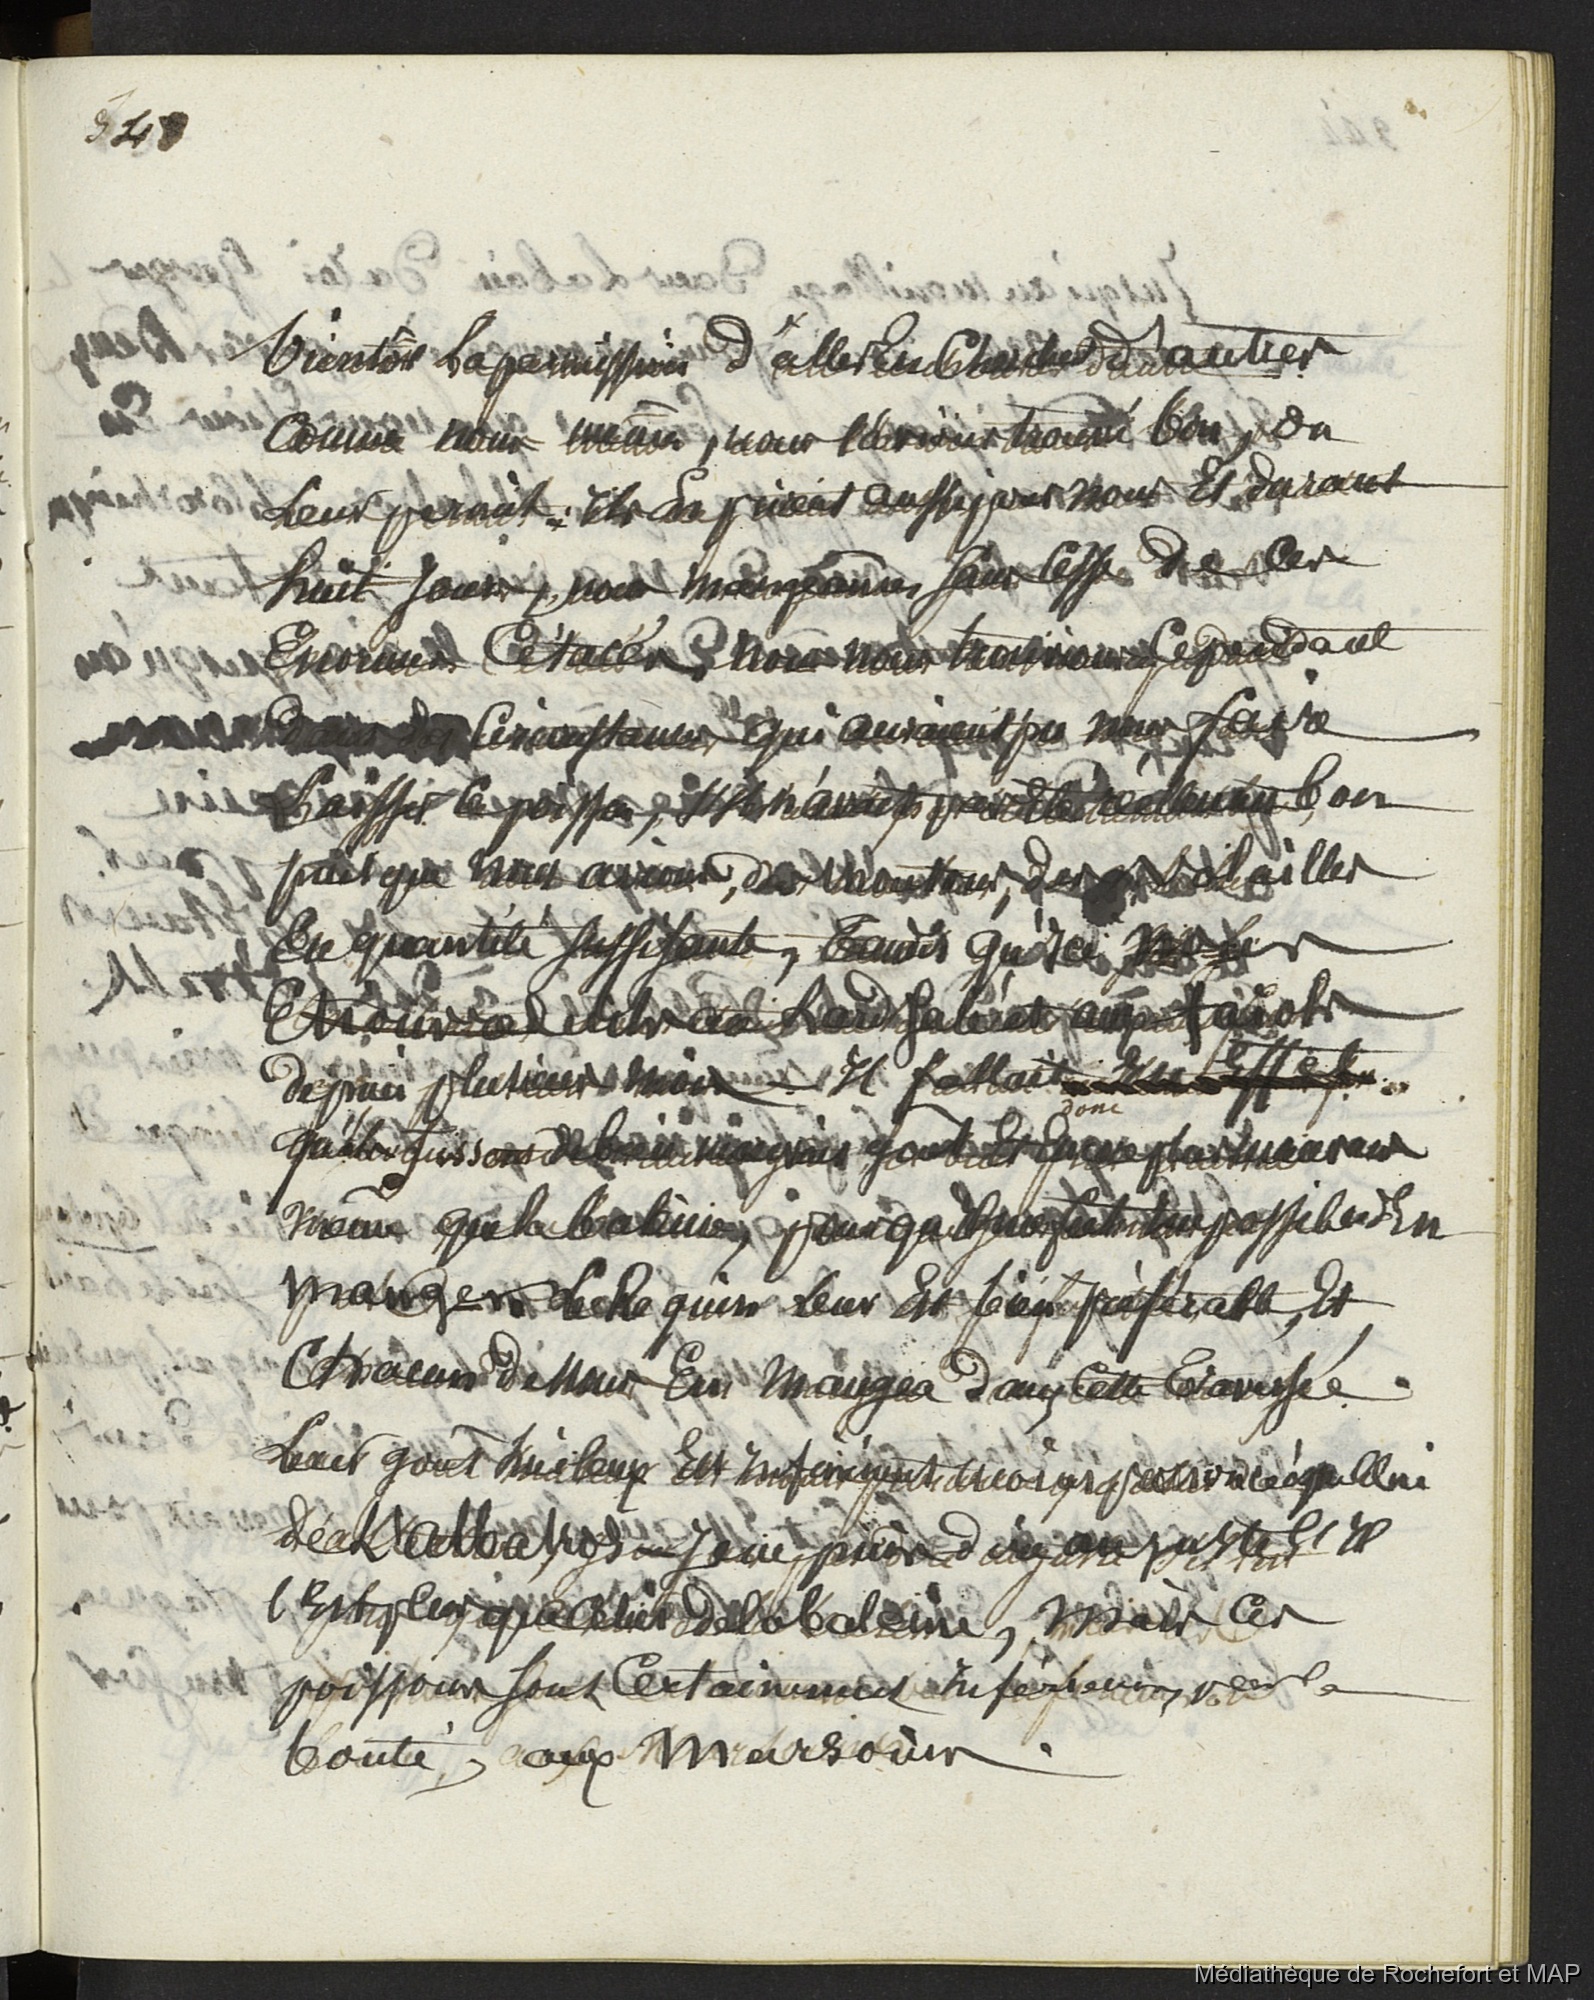 343
bientôt la permission d'aller en chercher d'autres
comme nous mêmes, nous l'avions trouvé bon, on
leur permit : ils en prirent aussi pour nous et durant
huit jours, nous mangeames sans cesse de ces
Enormes Cétacés, nous nous trouvions cependant
dans des circonstances qui auraient pu nous faire
laisser le poisson, s'il n'avait pas été réellement bon
puisque nous avions, des moutons, des volailles
En quantité suffisante, tandis qu'ici
au Lard salé et aux fayols
depuis plusieurs mois — Il fallait
donc
qu'ils fussent de bien mauvais gout Et Encore plus mauvais
même que la baleine, pour qu'il nous fut impossible d'En
manger. Le Requin leur Est bien préférable, Et
Chacun de nous En mangea dans cette traversée.
Leur goût huileux Est infiniment moins prononcé que celui
de l'albatros
l'Est plus que celui de la baleine, mais ces
poissons sont Certainement inférieurs, pour la
bonté, aux Marsouins.
Médiathèque de Rochefort et MAP